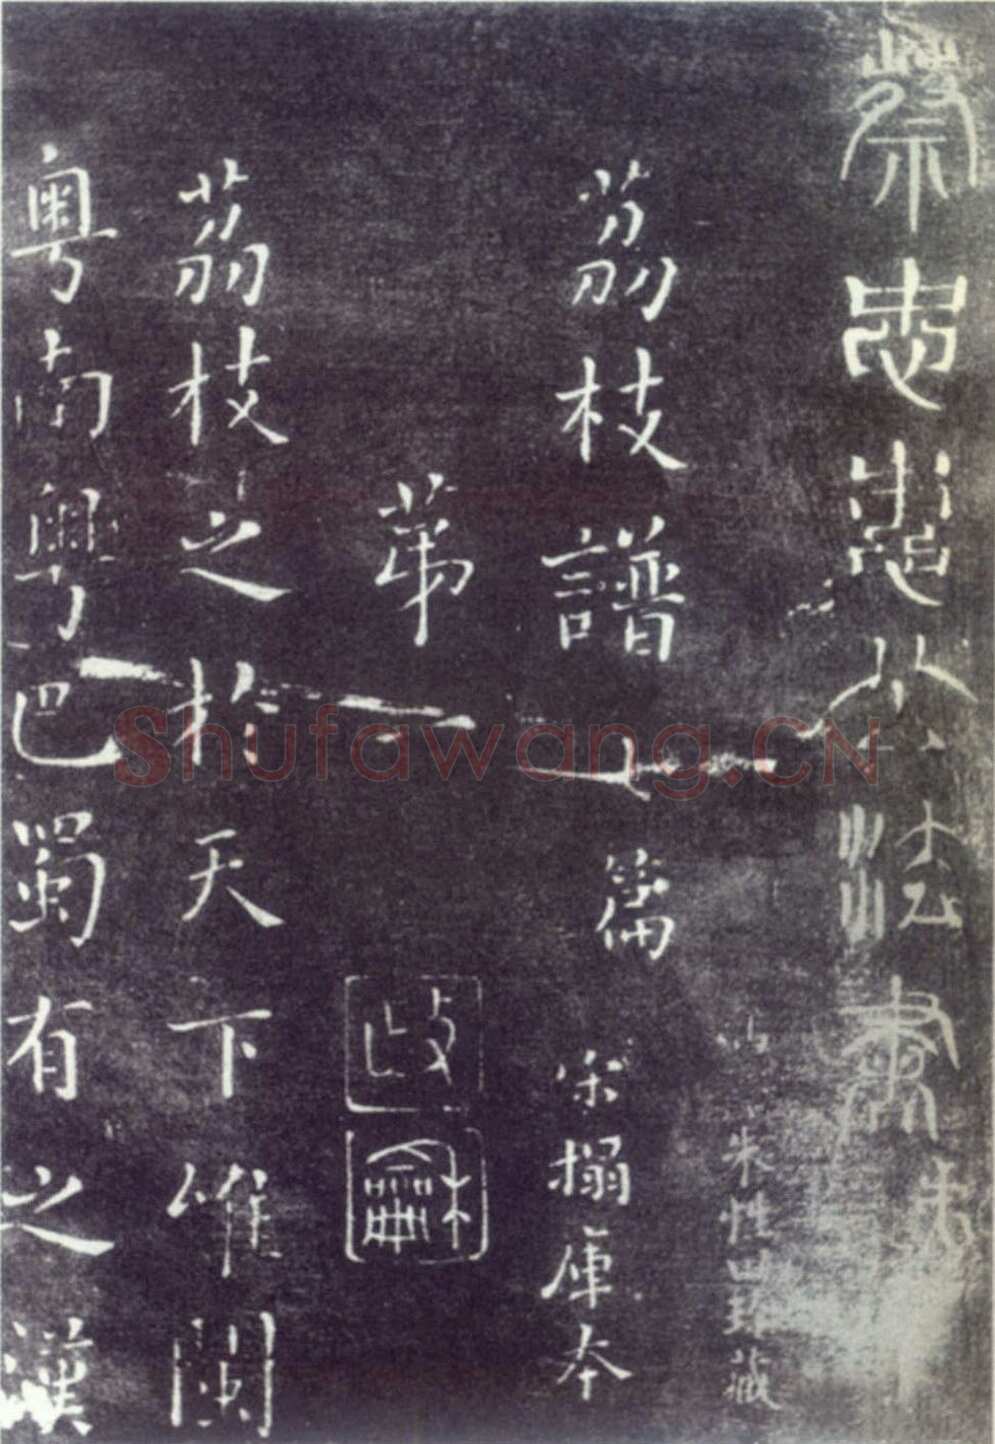 蔡忠惠公法書
朱性 藏
荔枝譜七篇 宋搨庫本
第一
政
龢
荔枝之於天下唯閩
粤南粤巴蜀有之漢
Shufawang.CN